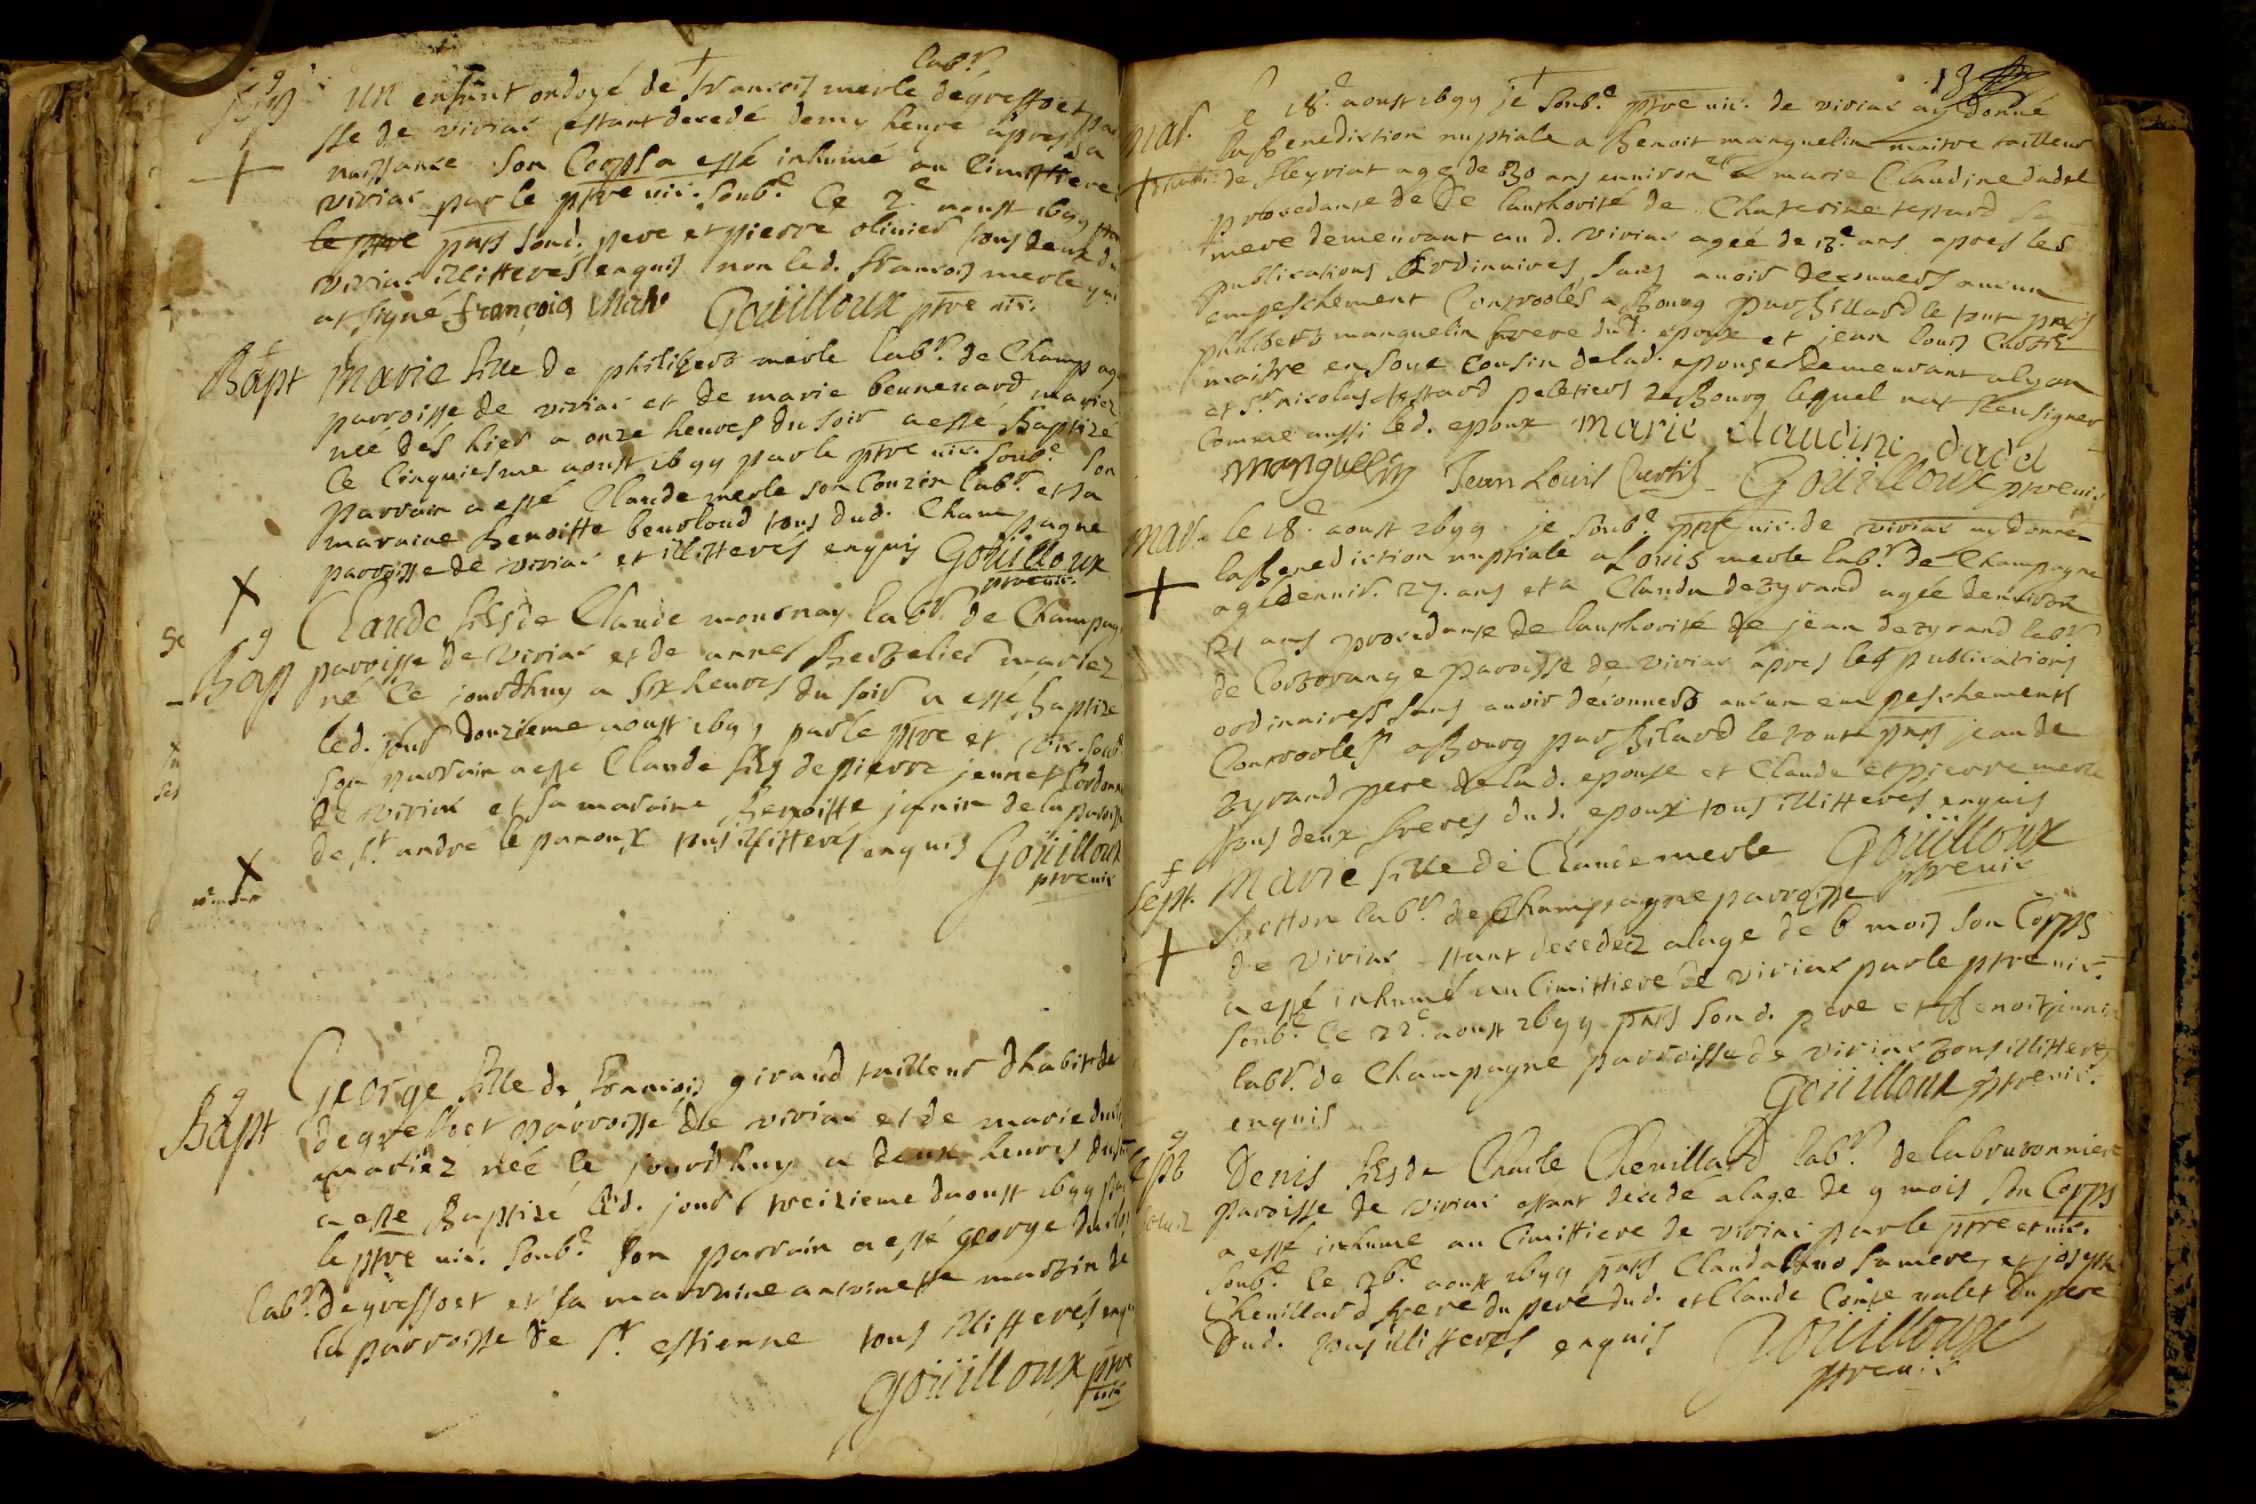 labr.
g
Sep un enfant ondoyé de francois merle degressoet par
sse de viriac estant decedé demy heure apres sa
naissance son Corps a esté inhumé au Cimittiere
viriac par le ptre vic. soub.e Ce 2e aoust 1699
le ptre pnts sond. pere et pierre olinier tous deux du
viriac illitterés enquis non led. francois merle qui
at signé françois Merle Goüilloux ptre vic.
f
Bapt Marie fille de philibert merle labr. de Champag
parroisse de viriac et de marie beunenard mariez
neé dés hier a onze heures du soir a esté Baptizé
Ce Cinquiesme aoust 1699 par le ptre vic. soub.e son
parrain a esté Claude merle son Couzin labr. et sa
maraine Benoitte tous dud. Champagne
parroisse de viriac et illitterés enquis Goüilloux
ptre vic.
g
Bap Claude fils de Claude mournay labr. de Champag
parroisse de viriac et de anne Berthelier mariez
né Ce jourdhuy a six heures du soir a esté Baptize
led. jour douzieme aoust 1699 par le ptre et vic. soub.
son parrain a esté Claude fils de pierre jennet
de viriac et sa maraine Benoitte janin de la parroiss
de st. andré le panoux tous illitterés enquis Goüilloux
ptre vic
g
Bapt George fille de francois giraud tailleur dhabit de
degressoet parroisse de viriac et de marie
mariez neé le jourdhuy a deux heures du
a esté Baptizé led. jour treizieme daoust 1699 par
le ptre vic. soub.e son parrain a esté george
labr. degressoet et sa marraine antoinette martin de
la parroisse de st. estienne tous illitterés enq
Goüilloux ptre
vic
13
mar. e 18.e aoust 1699 je soub.e ptre vic. de viriac ay donné
la Benediction nuptiale a Benoit manguelin maitre tailleur
de fleyriat agé de 30 ans environ et a marie Claudine dadel
procedante de de lauthorité de Chaterine testard sa
mere demeurant aud. viriac ageé de 18.e ans apres les
publications ordinaires sans avoir decouvers aucun
empeschement Controolés a Bourg par Billard le tout pnts
philibert manguelin frere dud. epoux et jean louis Curtil
maitre en cousin de lad. epouse demeurant a lyon
et sr. nicolas testard peletiers de Bourg lequel nat sceu signer
Comme aussi led. epoux Marie Claudine dadel
manguelin Jean Louis Curtil Goüilloux ptre vic
mar. le 18.e aoust 1699 je soub.e ptre vic. de viriac ay donné
la Benediction nuptiale a Louis merle labr. de Champagne
agé denvir. 27. ans et a Clauda dezyrand ageé denviron
21 ans procedante de lauthorité de jean dezyrand labr.
de Cortorange paroisse de viriac apres les publications
ordinaires sans avoir decouvers aucun empeschements
Controoles a Bourg par Bilard le tout pnts jean de
zyrand pere de lad. epouse et Claude et pierre merle
tous deux freres dud. epoux tous illitteres enquis
Goüilloux
ptre vic
f
Sept. Marie fille de Claude merle
labr. de Champagne parroisse
de viriac stant decedéez a lage de 6 mois son Corps
a esté inhumé au Cimittiere de viriac par le ptre vic.
soub.e le 22.e aoust 1699 pnts son d. pere et Benoit jannin
labr. de Champagne parroisse de viriac tous illitteres
enquis Goüilloux ptre vic.
g
Sept Denis fils de Charle Chevillard labr. de labruvonniere
paroisse de viriac estant decedé a lage de 9 mois son Corps
a esté inhumé au Cimittiere de viriac par le ptre et vic.
soub.e le 26.e aoust 1699 pnts Clauda sa mere, et joseph
Chevillard frere du pere dud. et Claude Conte valet du pere
dud. tous illitterés enquis Goüilloux
ptre vic